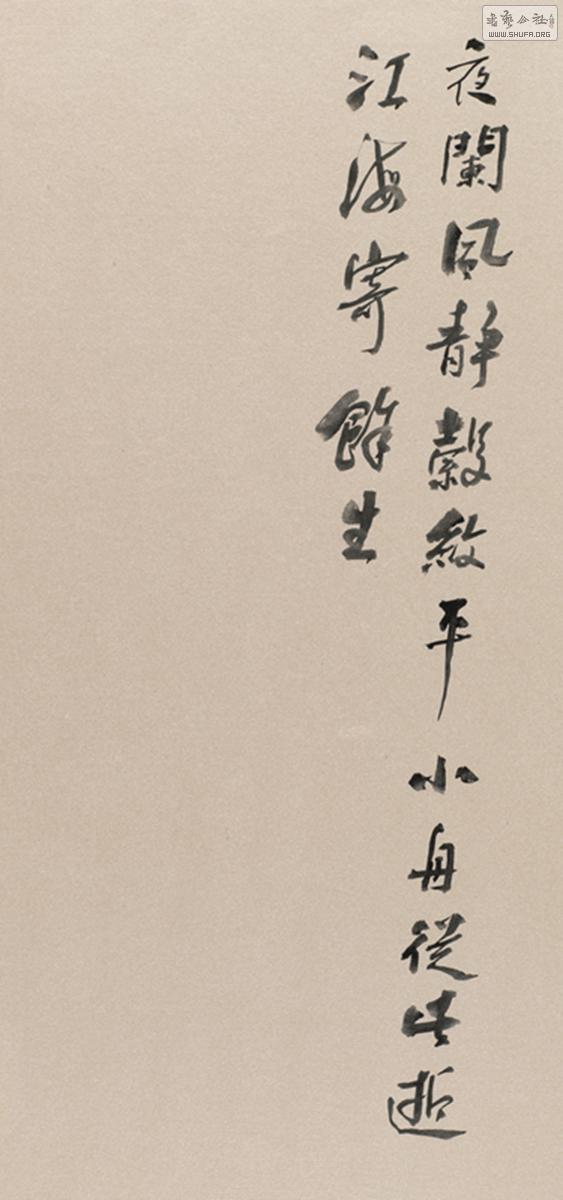 夜闌風靜縠紋平小舟從此逝
江海寄餘生
書藝公社
WWW.SHUFA.ORG